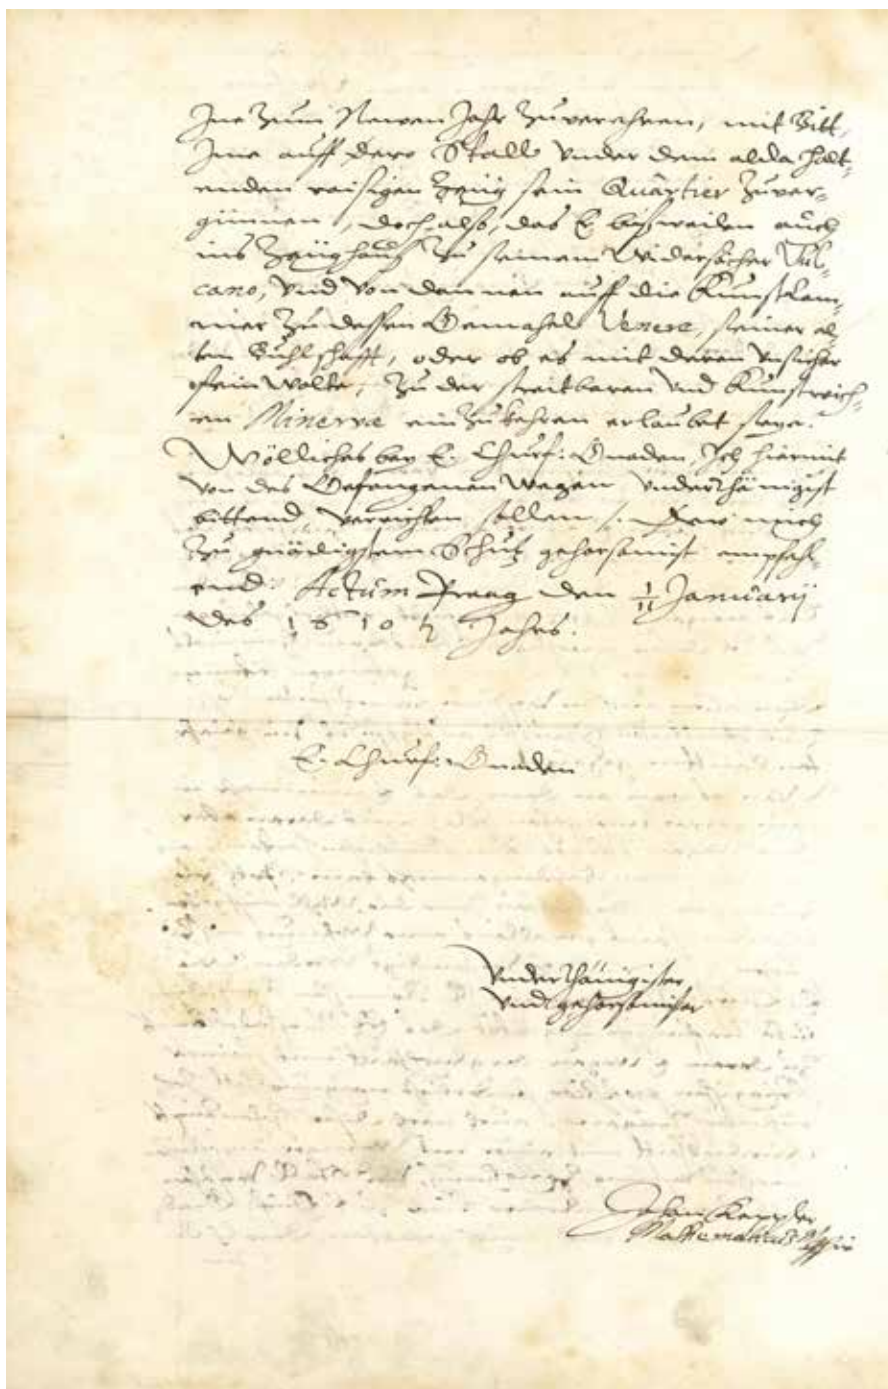 Ine zum Newen Jahr zuverehren, mit Bitt,
Ime auff dero Stall vnder dem alda halt-
enden raisigen Zeüg sein Quartier zuver-
günnen, doch also, das Er bißweilen auch
ins Zeüghauß zu seinem Widersacher Vul-
cano, vnd von dannen auff die Kunstkam-
mer zu dessen Gemahel Venere, seiner al-
ten Buhlschafft, oder ob es mit deren vnsicher
sein wolte, zu der streitbaren vnd Kunstreich-
en Minerva einzukehren erlaubet seye.
Wölliches bey E. Churf: Gnaden, Ich hiermit
von des Gefangenen wegen vnderthänigist
bittend, verrichten sollen /. Dero mich
zu gnädigstem Schutz gehorsamist empfehl-
end. Actum Praag den 1/11 Januarij
des 1607 Jahrs.
E. Churf: Gnaden
Vnderthänigister
vnd gehorsamister
Johan Keppler
Mathematicus